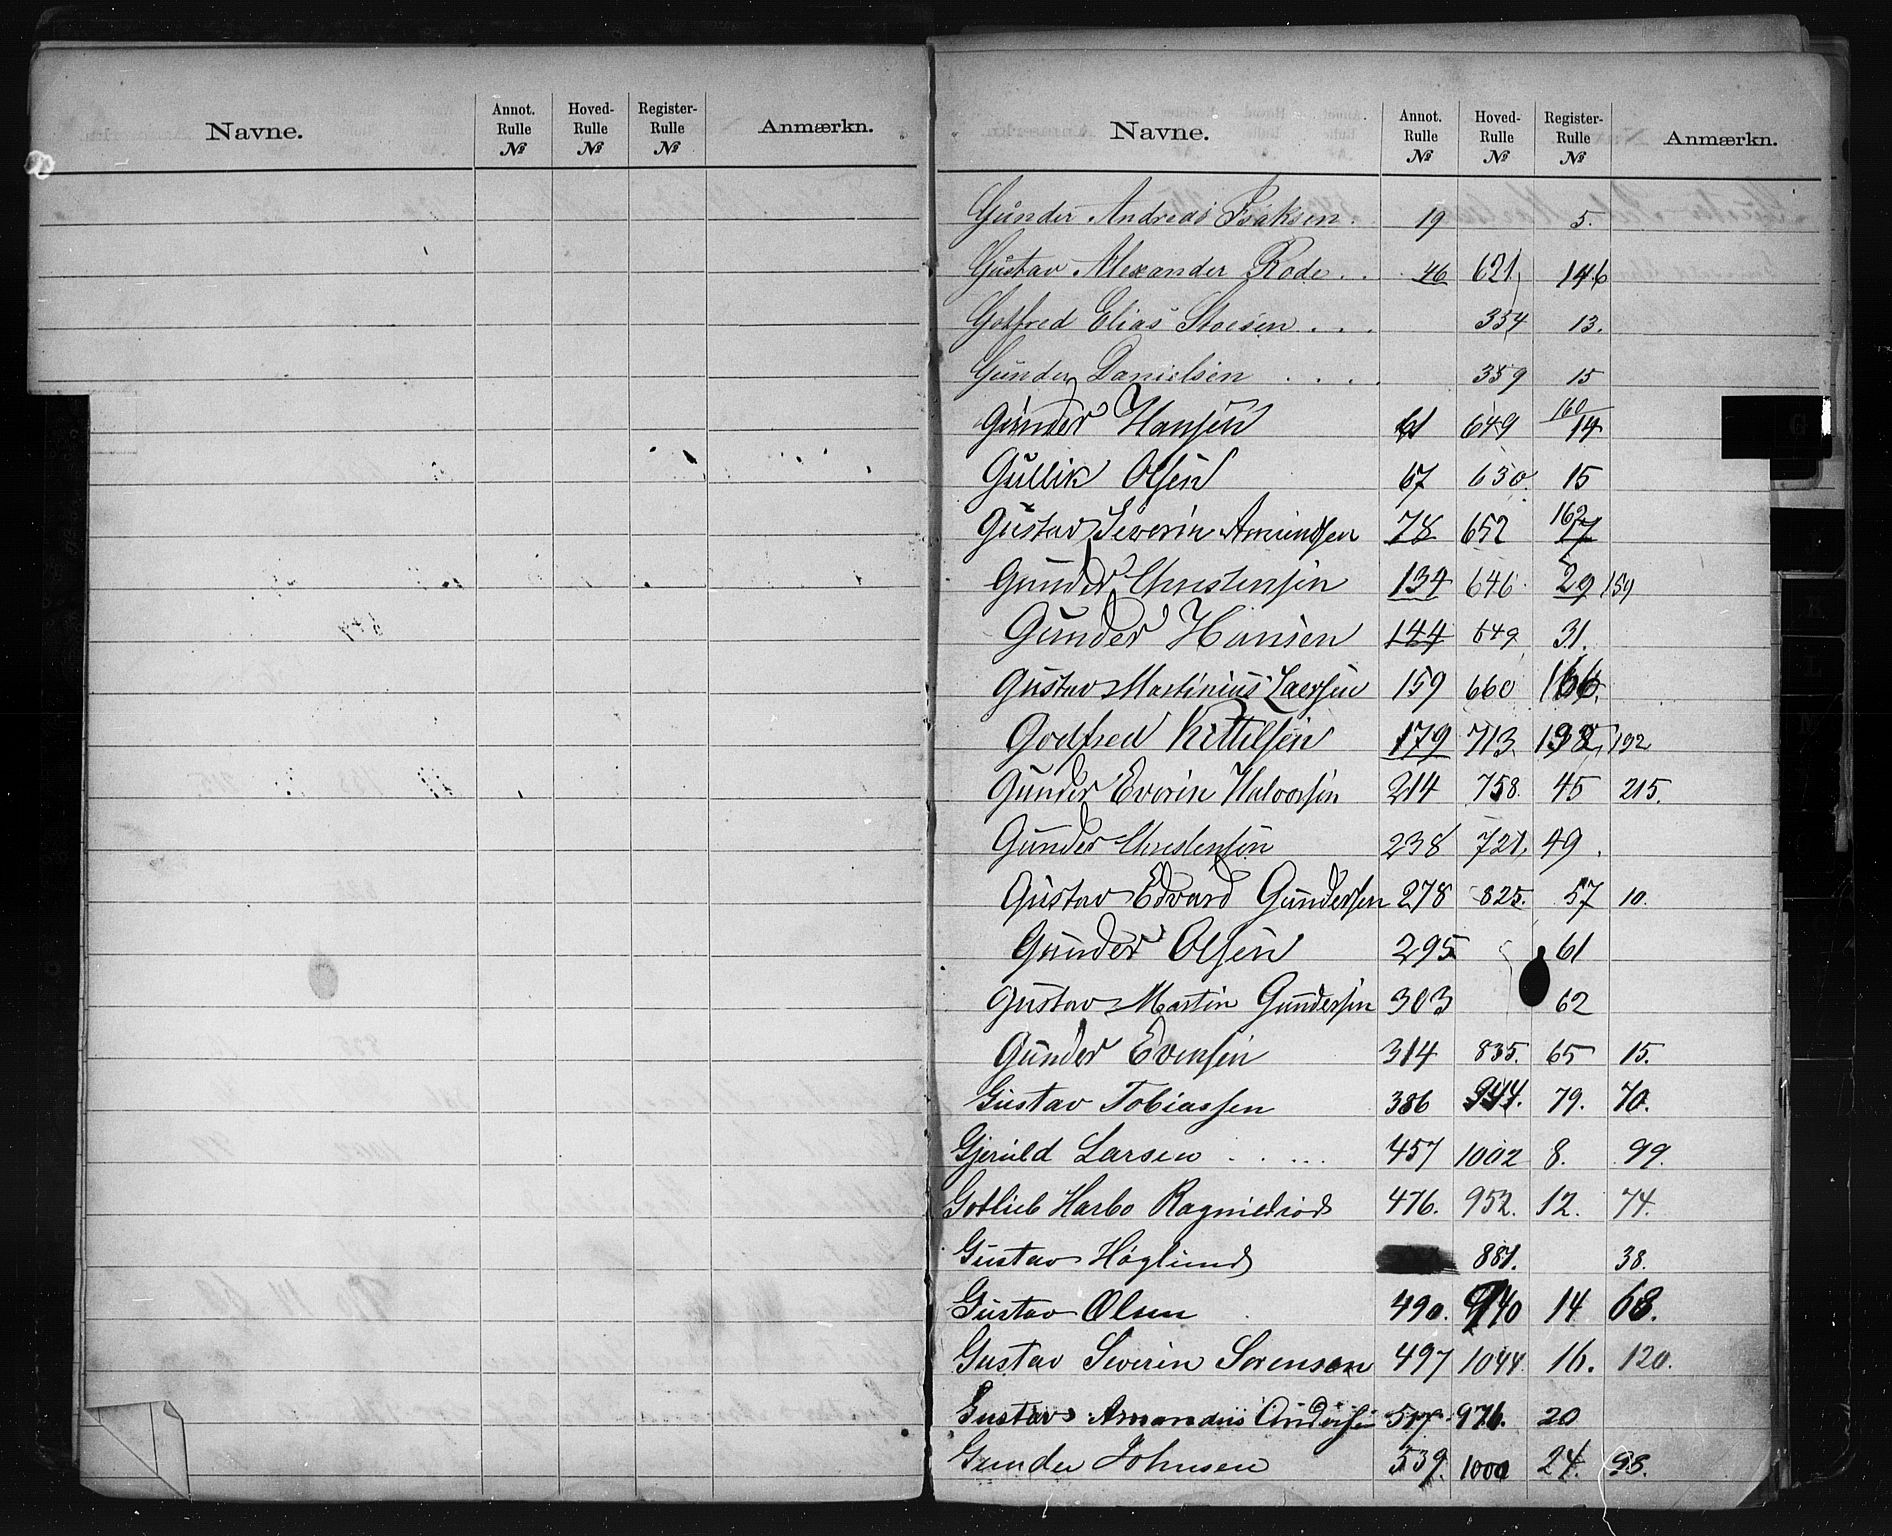 Navne. Annot. Rulle № Hoved- Rulle № Register- Rulle № Anmærkn.
Navne. Annot. Rulle № Hoved- Rulle № Register- Rulle № Anmærkn.
Gunder Andreas Isaksen. 19 5.
Gustav Alexander Rode . . 46 621, 146
Gotfred Elias Stoesen . . . 354 13.
Gunder Danielsen . . . . 359 15
Gunder Hansen 61 649 160 14
Gullik Olsen 67 650. 15
Gustav Severin Amundsen 78 652 162 17
Gunder Christensen 134 646 29 159
Gunder Hansen 144 649 31.
Gustav Martinius Larsen 159 660 166.
Godfred Kittilsen 179 713 192
Gunder Everin Halvorsen 214 758. 45 215.
Gunder Christensen 238 721, 49.
Gustav Edvard Gundersen 278 825. 57 10.
Gunder Olsen 295 61
Gustav Martin Gundersen 303 62
Gunder Evensen 314 835. 65 15.
Gustav Tobiassen 386 944. 79. 70.
Gjeruld Larsen . . . . . 457 1002 8. 99.
Gotlieb Harbo 476. 952. 12. 74.
Gustav Höglund 881. 38.
Gustav Olsen 490. 940 14 68.
Gustav Severin Sørensen 497 1044. 16. 120.
Gustav Amandus Andersen 517 976. 20
Gunder Johnsen 539. 1000 24. 98.
G